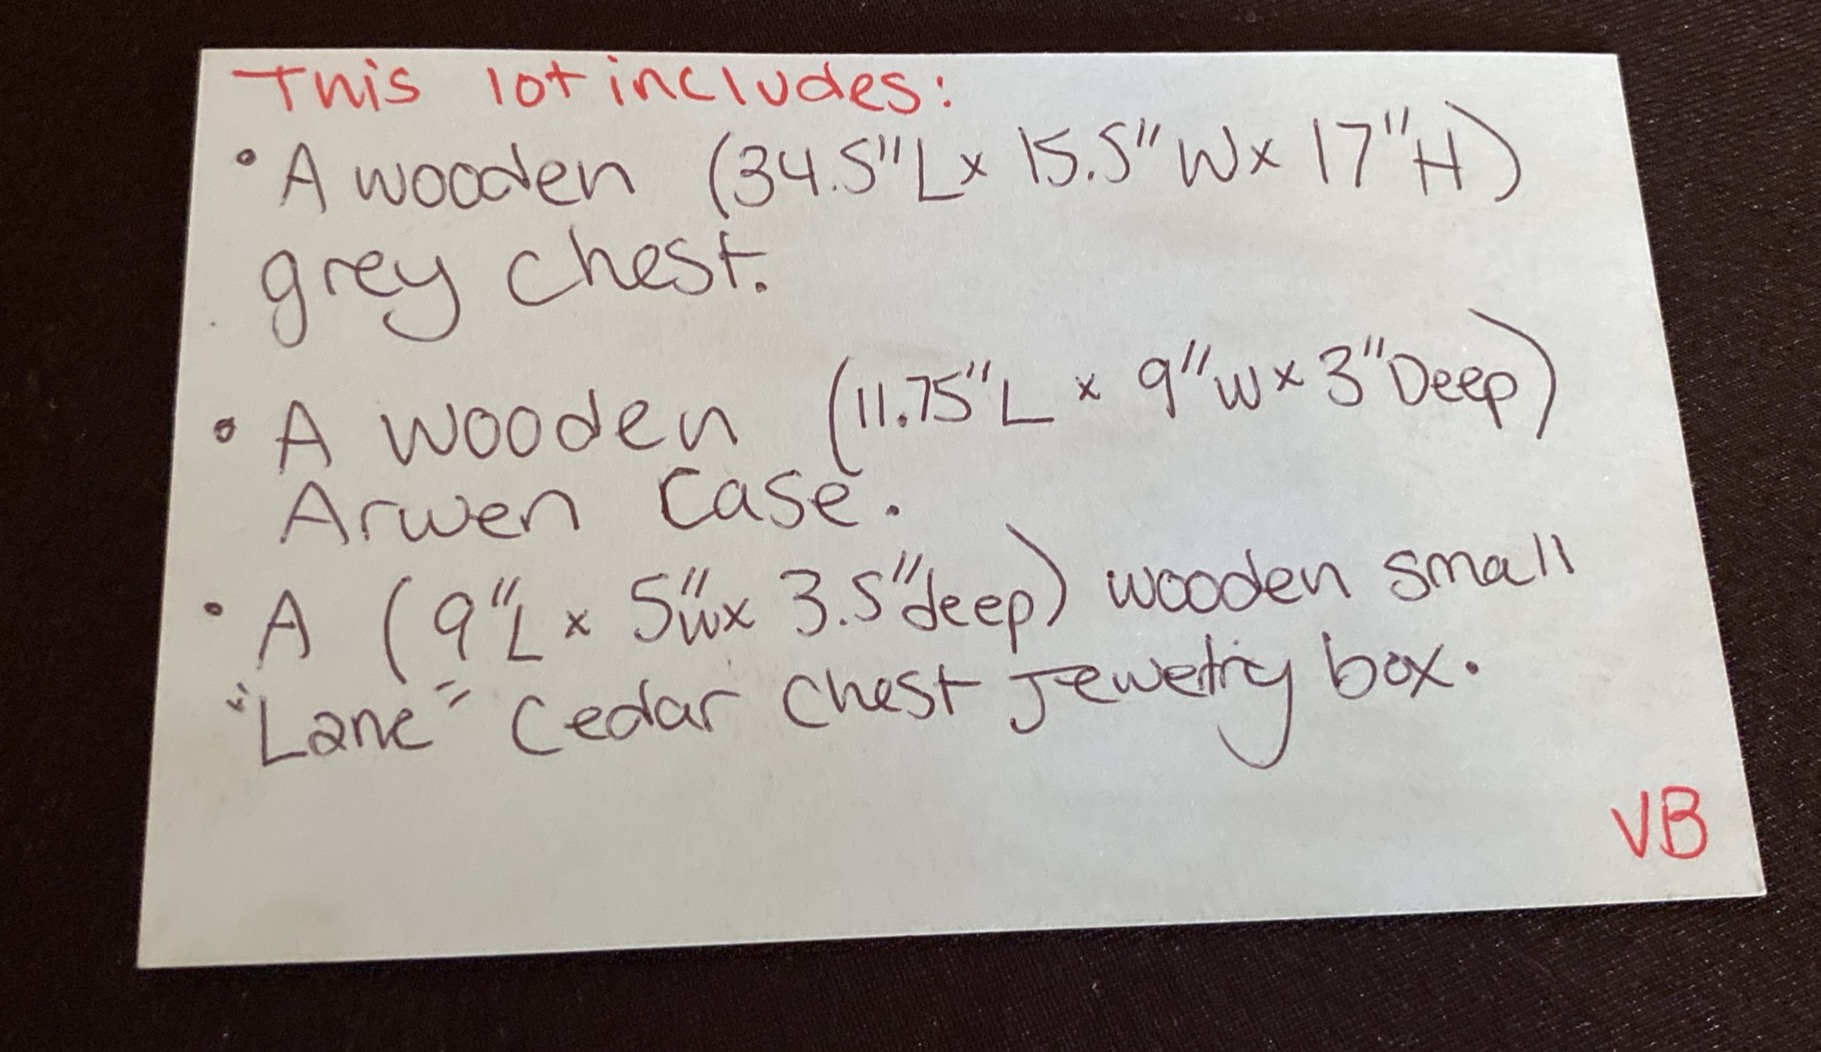 This lot includes:
• A wooden (34.5"L x 15.5" W x 17"H)
grey chest.
• A wooden (11.75"L x 9"W x 3"Deep)
Arwen Case.
• A (9"L x 5"W x 3.5"deep) wooden small
"Lane" Cedar Chest Jewelry box.
VB